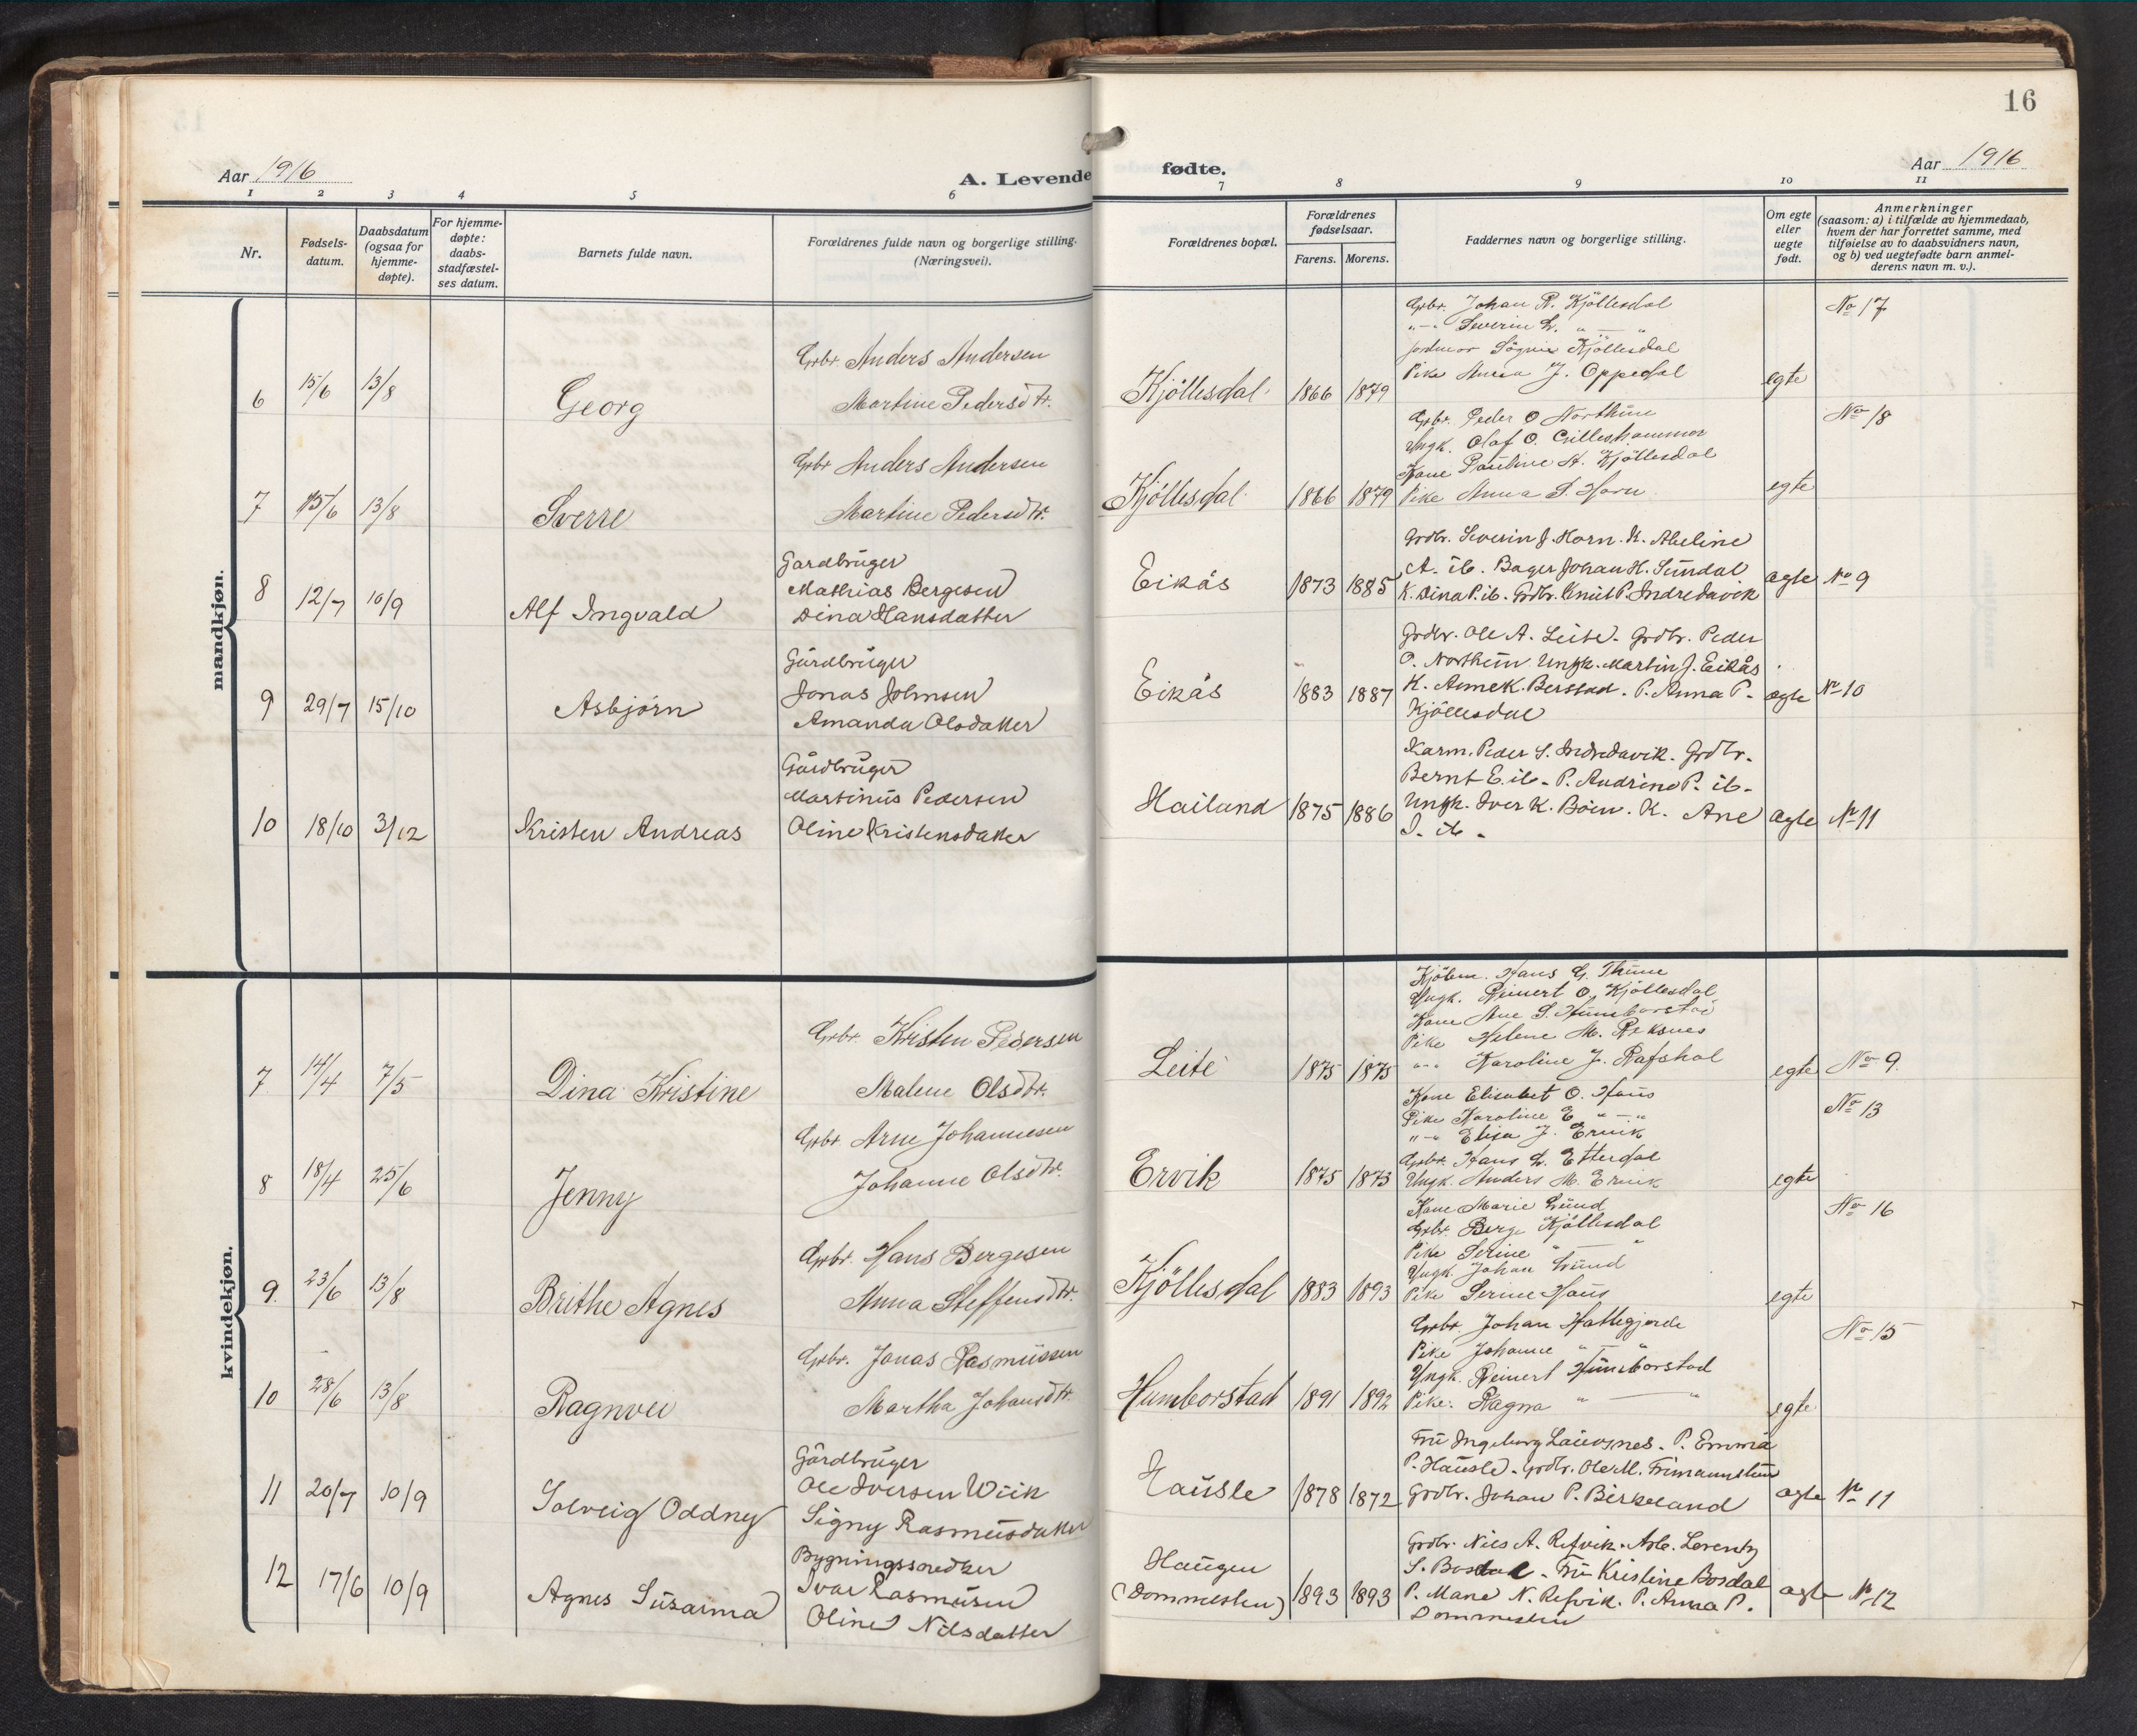 16
Aar 1916
A. Levende fødte.
Aar 1916
1 2 3 4 5 6 7 8 9 10 11
Nr.
Fødsels-
datum.
Daabsdatum
(ogsaa for
hjemme-
døpte).
For hjemme-
døpte:
daabs-
stadfæstel-
ses datum.
Barnets fulde navn.
Forældrenes fulde navn og borgerlige stilling.
(Næringsvei).
Forældrenes bopæl.
Forældrenes
fødselsaar.
Farens. Morens.
Faddernes navn og borgerlige stilling.
Om egte
eller
uegte
født.
Anmerkninger
(saasom: a) i tilfælde av hjemmedaab,
hvem der har forrettet samme, med
tilføielse av to daabsvidners navn,
og b) ved uegtefødte barn anmel-
derens navn m. v.).
mandkjøn.
6 15/6 13/8 Georg
Grbr. Anders Andersen
Martine Pedersdtr.
Kjöllesdal 1866 1879
Grbr. Johan R. Kjöllesdal
"-" Severin L. " — "
Jordmor Sögnie Kjöllesdal
Pike Anna J. Oppedal
egte
No 17
7 15/6 13/8 Sverre
Grbr Anders Andersen
Martine Pedersdtr.
Kjöllesdal 1866 1879
Grbr. Peder O Northun
Ungk. Olaf O. Gilleshammer
Kone Pauline A. Kjöllesdal
Pike Anna S. Horn
egte
No 18
8 12/7 10/9 Alf Ingvald
Gardbruger
Mathias Bergesen
Dina Hansdatter
Eikås 1873 1885
Grdbr. Severin J. Horn. K. Abeline
A. ib. Bager Johan H. Sundal
K. Dina P. ib. Grdbr. Knut P. Indredavik
ægte
No 9
9 29/7 15/10 Asbjørn
Gårdbruger
Jonas Johnsen
Amanda Olsdatter
Eikås 1883 1887
Grdbr. Ole A. Leite. Grdbr. Peder
O. Northun Ungk. Martin J. Eikås
K. Anne K. Berstad. P. Anna P.
Kjöllesdal
ægte
No 10
10 18/10 3/12 Kristen Andreas
Gårdbruger
Martinus Pedersen
Oline Kristensdatter
Hailand 1875 1886
Karm. Peder S. Indredavik. Grdbr.
Bernt E. ib. P. Andrine P. ib.
Ungk. Iver K. Böen. K. Ane
I. ib.
ægte
No 11
kvindekjøn.
7 14/4 7/5 Dina Kristine
Grbr. Kristen Pedersen
Malene Olsdtr.
Leite 1875 1875
Kjöbm. Hans G. Thune
Ungk. Reinert O. Kjöllesdal
Kone Ane S. Humborstad
Pike Helene M. Reksnes
"-" Karoline J. Rafshol
egte
No 9.
8 18/4 25/6 Jenny
Grbr Arne Johannesen
Johanne Olsdtr.
Ervik 1875 1873
Kone Elisabet O. Haus
Pike Karoline E " — "
"-" Elisa J. Ervik
Grbr. Hans L. Etterdal
Ungk. Anders M. Ervik
egte
No 13
9. 23/6 13/8 Brithe Agnes
Grbr. Hans Bergesen
Anna Steffensdtr.
Kjöllesdal 1883 1893
Kone Marie Lund
Grbr. Berge Kjöllesdal
Pike Serine " — "
Ungk. Johan Lund
Pike Serine Haus
egte
No 16
10 28/6 13/8 Ragnvei
Grbr. Jonas Rasmussen
Martha Johansdtr.
Humborstad 1891 1892
Grbr. Johan Hattegjerde
Pike Johanne " — "
Ungk. Reinert Humborstad
Pike. Ragna " — "
egte
No 15
11 20/7 10/9 Solveig Oddny
Gårdbruger
Ole Iversen Wiik
Signy Rasmusdatter
Hausle 1878 1872
Fru Ingeborg P. Emma
P. Hausle. Grdbr. Ole M.
Grdbr. Johan P. Birkeland
ægte
No 11
12 17/6 10/9 Agnes Susanna
Bygningssnedker
Ivar Rasmusen
Oline Nilsdatter
Haugen
(Dommesten) 1893 1893
Grdbr. Nils A. Refvik. Arb. Lorentz
S. Bosdal. Fru Kristine Bosdal
P. Mane N. Refvik. P. Anna P.
Dommesten
ægte
No 12